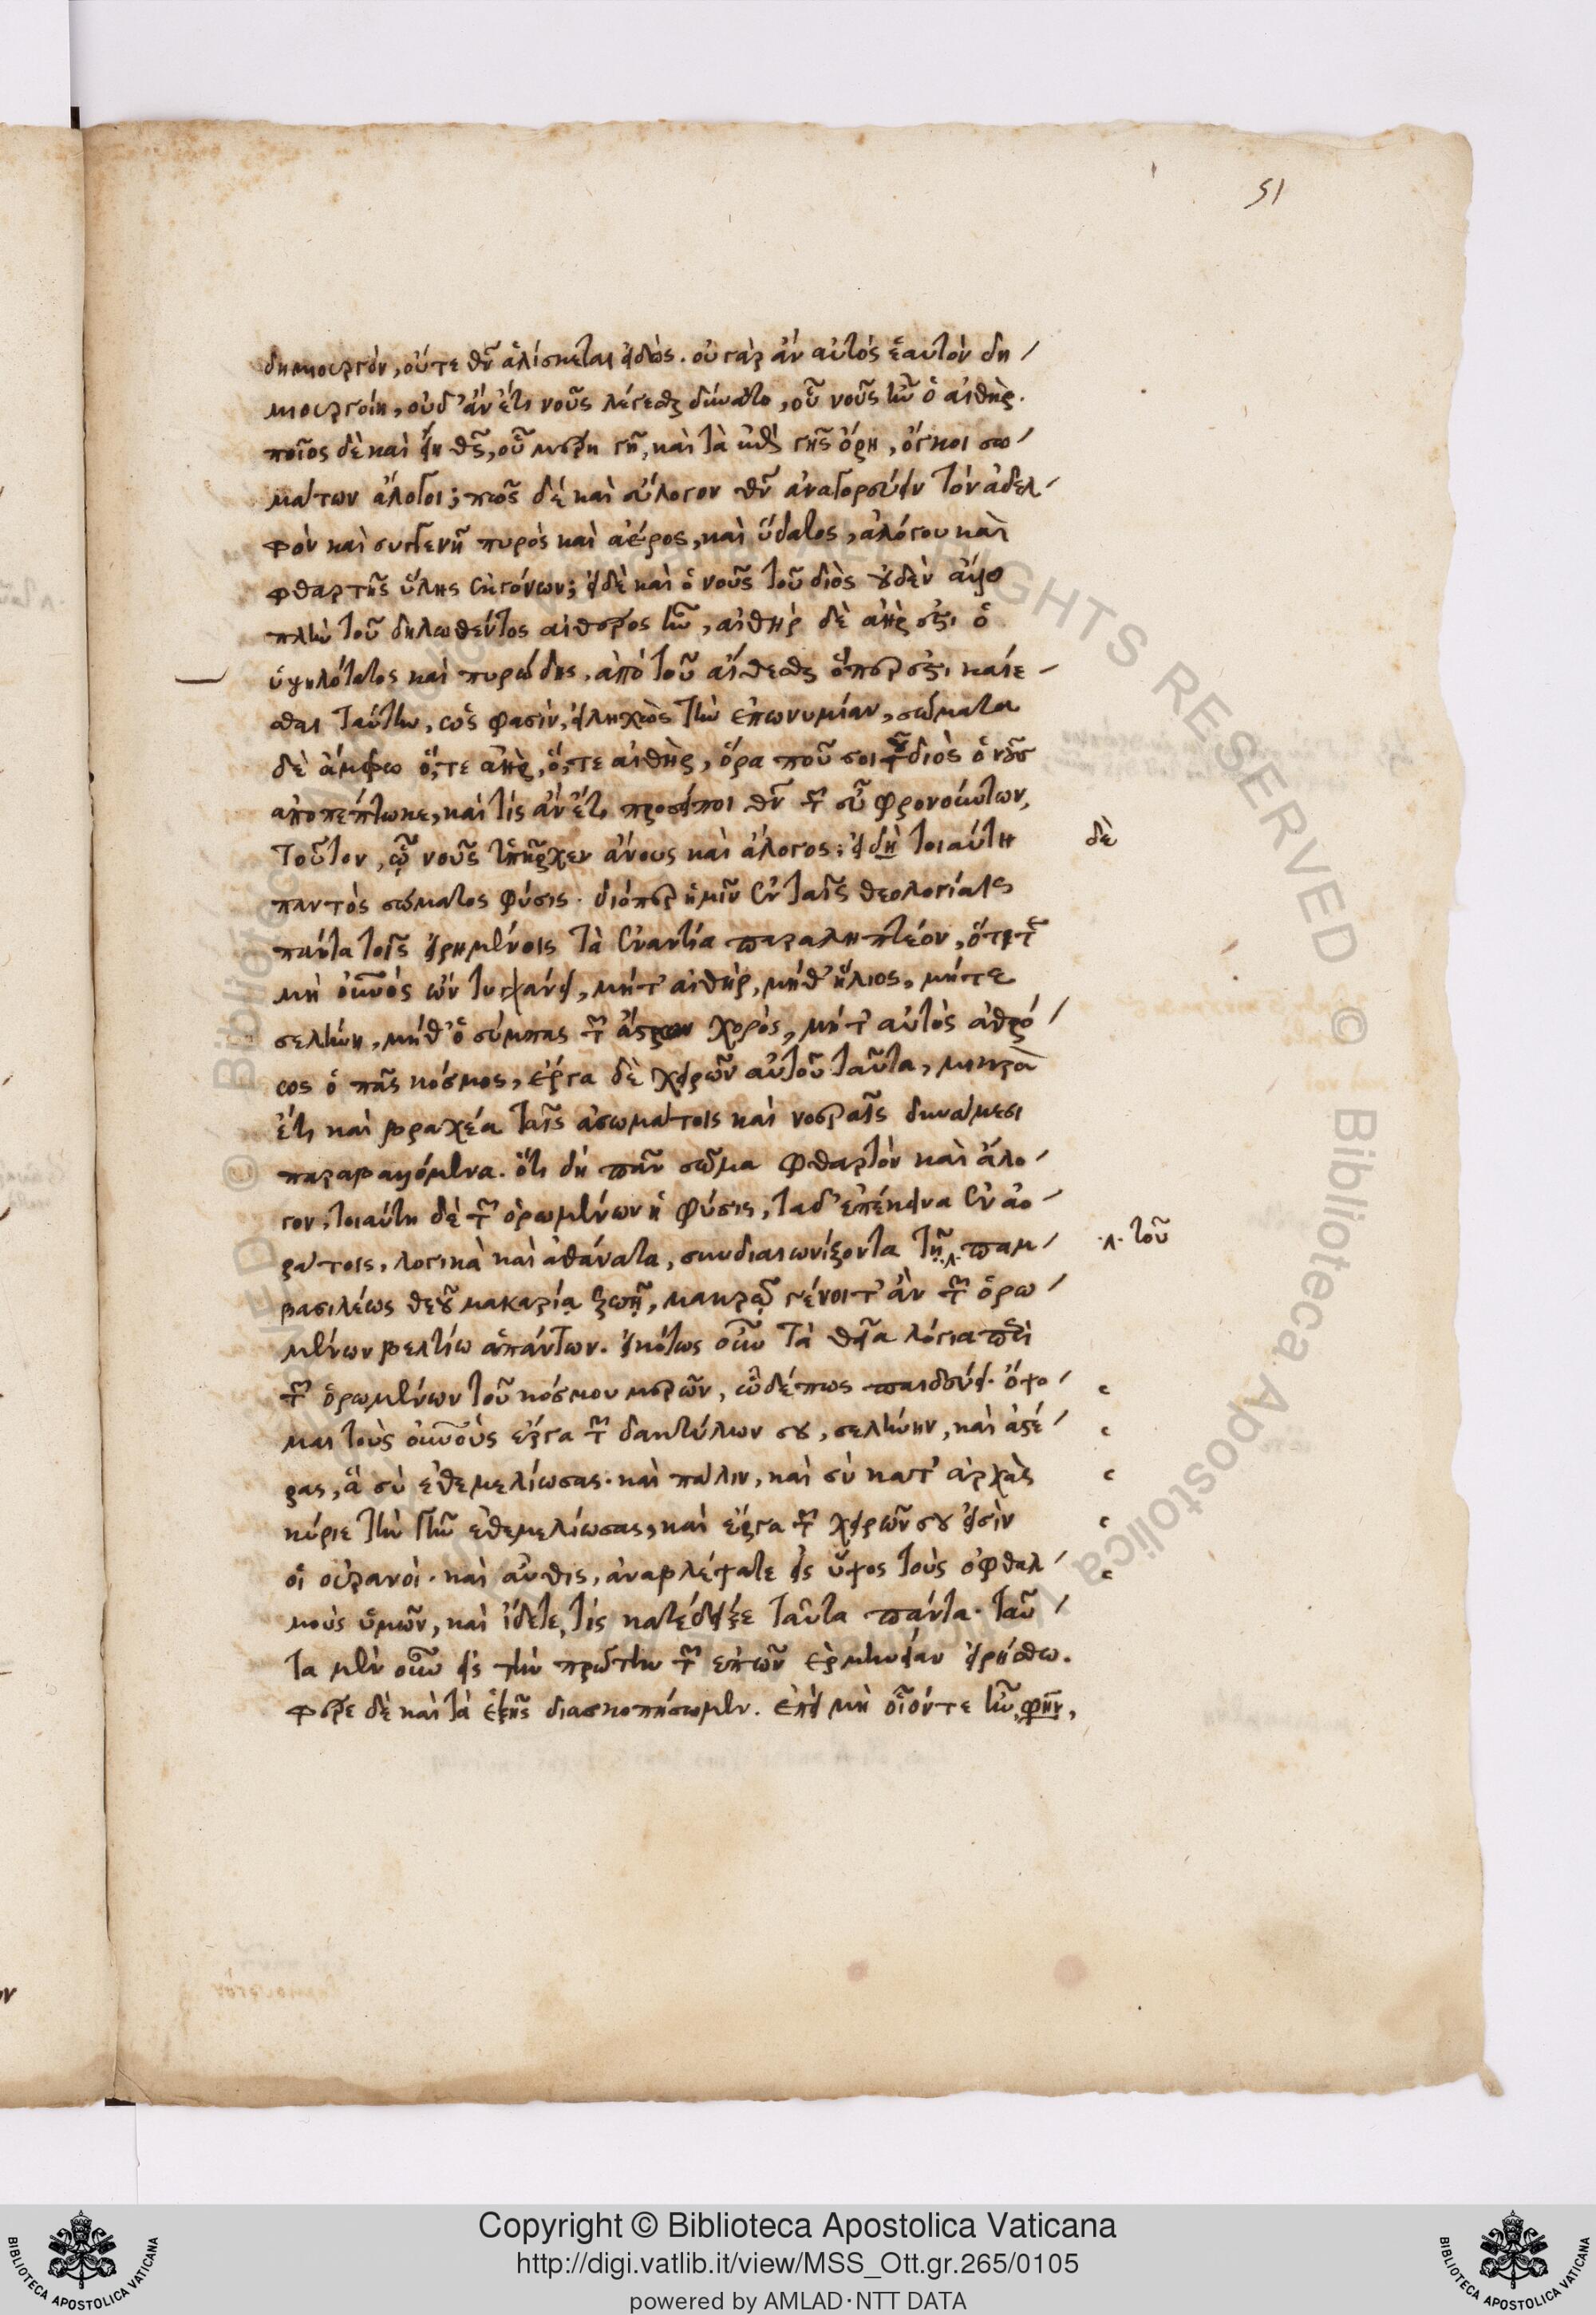 51
δημιουργόν, οὔτε θν̅ ἁλίσκεται εἰδώς. οὐ γὰρ ἂν αὐτὸς ἑαυτὸν δη
μιουργοίη, οὐδ' ἂν ἔτι νοῦς λέγεσθαι δύναιτο, οὗ νοῦς ἦν ὁ αἰθήρ.
ποῖος δὲ καὶ εἴη θς̅, οὗ μέρη γῆ, καὶ τὰ ἐπὶ γῆς ὄρη, ὄγκοι σω
μάτων ἄλογοι; πῶς δὲ καὶ εὔλογον θν̅ ἀναγορεύειν τὸν ἀδελ
φὸν καὶ συγγενῆ πυρὸς καὶ ἀέρος, καὶ ὕδατος, ἀλόγου καὶ
φθαρτῆς ὕλης ἐγγόνων; εἰ δὲ καὶ ὁ νοῦς τοῦ διὸς οὐδὲν ἄλλο
πλὴν τοῦ δηλωθέντος αἰθέρος ἦν, αἰθὴρ δὲ ἀήρ ἐστι ὁ
ὑψηλότατος καὶ πυρώδης, ἀπὸ τοῦ αἴθεσθαι ὅπερ ἐστι καίε
σθαι ταύτην, ὥς φασιν, εἰληχὼς τὴν ἐπωνυμίαν, σώματα
δὲ ἄμφω ὅ,τε ἀήρ, ὅ,τε αἰθὴρ, ὅρα ποῦ σοι τοῦ διὸς ὁ νοῦς
ἀποπέπτωκε, καὶ τίς ἂν ἔτι προσείποι θν̅ τῶν εὖ φρονούντων,
τοῦτον, ᾧ νοῦς ὑπῆρχεν ἄνους καὶ ἄλογος; εἰ δὴ τοιαύτη
δὲ
παντὸς σώματος φύσις. διόπερ ἡμῖν ἐν ταῖς θεολογίαις
πάντα τοῖς εἰρημένοις τὰ ἐναντία παραληπτέον, ὅτι
μὴ οὐνος ὢν τυγχάνει, μήτ' αἰθήρ, μήθ' ἥλιος, μήτε
σελήνη, μήθ' ὁ σύμπας τῶν ἄστρων χορὸς, μήτ' αὐτὸς ἀθρό
ος ὁ πᾶς κόσμος, ἔργα δὲ χειρῶν αὐτοῦ ταῦτα, μικρὰ
ἔτι καὶ βραχέα ταῖς ἀσωμάτοις καὶ νοεραῖς δυνάμεσι
παραβαλλόμενα. ὅτι δὴ πᾶν σῶμα φθαρτὸν καὶ ἄλο
γον, τοιαύτη δὲ τῶν ὁρωμένων ἡ φύσις, τὰ δ' ἐπέκεινα ἐν ἀο
ράτοις, λογικὰ καὶ ἀθάνατα, συνδιαιωνίζοντα τῇ παμ
·λ· τοῦ
βασιλέως θεοῦ μακαρίᾳ ζωῇ, μακρῷ γένοιτ' ἂν τῶν ὁρω
μένων βελτίω ἁπάντων. εἰκότως οὖν τὰ θεῖα λόγια περὶ
τῶν ὁρωμένων τοῦ κόσμου μερῶν, ὧδέ πως παιδεύει. ὄψο
μαι τοὺς οὐνοὺς ἔργα τῶν δακτύλων σου, σελήνην, καὶ ἀστέ
ρας, ἃ σὺ ἐθεμελίωσας. καὶ πάλιν, καὶ σὺ κατ' ἀρχὰς
κύριε τὴν γῆν ἐθεμελίωσας, καὶ ἔργα τῶν χειρῶν σου εἰσὶν
οἱ οὐρανοί. καὶ αὖθις, ἀναβλέψατε εἰς ὕψος τοὺς ὀφθαλ
μοὺς ὑμῶν, καὶ ἴδετε, τίς κατέδειξε ταῦτα πάντα. ταῦ
τα μὲν οὖν εἰς τὴν πρώτην τῶν ἐπῶν ἑρμηνείαν εἰρήσθω.
φέρε δὲ καὶ τὰ ἑξῆς διασκοπήσωμεν. ἐπεὶ μὴ οἷόντε ἦν, φην,
Copyright © Biblioteca Apostolica Vaticana
http://digi.vatlib.it/view/MSS_Ott.gr.265/0105
powered by AMLAD·NTT DATA
BIBLIOTECA APOSTOLICA VATICANA
BIBLIOTECA APOSTOLICA VATICANA